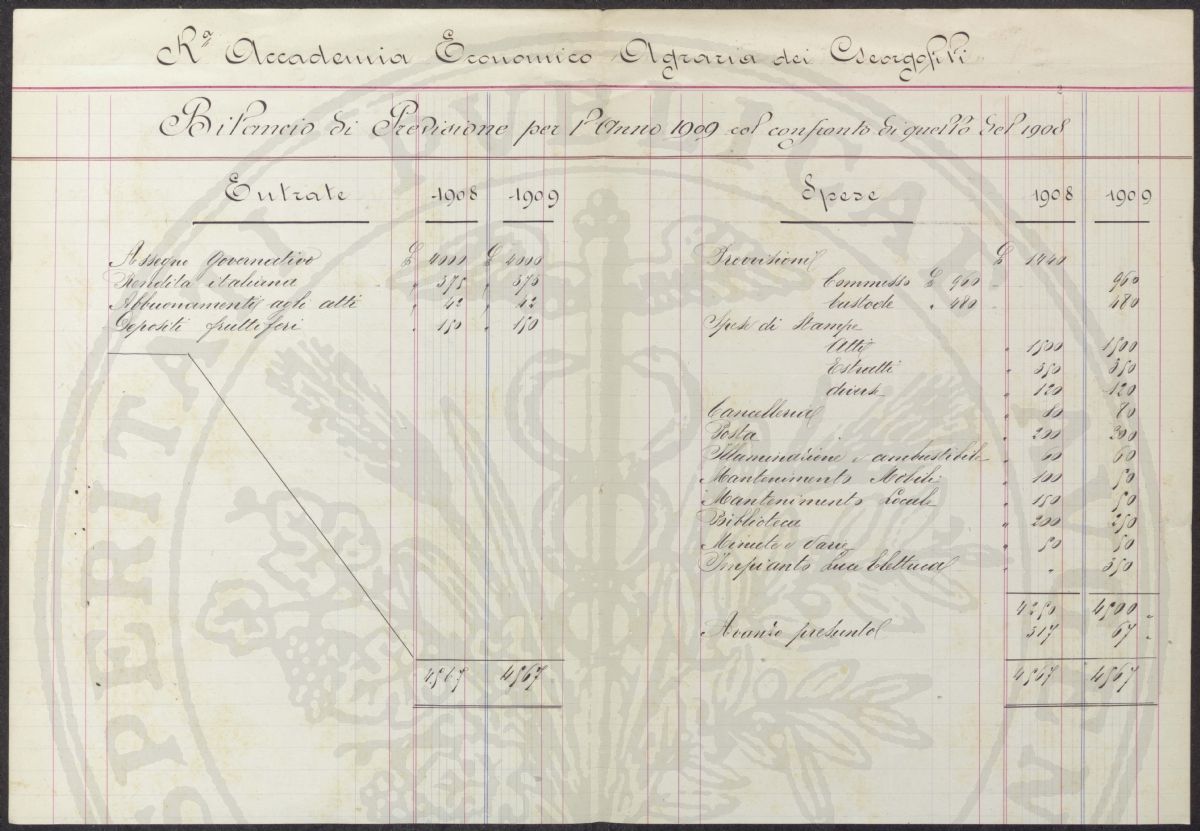 Rª Accademia Economico Agraria dei Georgofili
Bilancio di Previsione per l'Anno 1909 col confronto di quello del 1908
Entrate 1908 1909
Assegno Governativo £ 4000 £ 4000
Rendita italiana " 375 " 375
Abbuonamento agli atti " 42 " 42
Depositi fruttiferi " 150 " 150
4567 4567
Spese 1908 1909
Provvisioni £ 1440
Commesso £ 960 - 960
Custode " 480 - 480
Spese di Stampe
Atti " 1500 1500
Estratti " 350 350
diverse " 120 120
Cancelleria " 80 80
Posta " 200 200
Illuminazione e combustibile " 60 60
Mantenimento Mobili " 100 50
Mantenimento Locale " 150 50
Biblioteca " 200 250
Minute e Varie " 50 50
Impianto Luce Elettrica " " 350
4250 4500 "
Avanzo presunto 317 67 "
4567 4567
SPERITATI PVBLICAE AVGEN